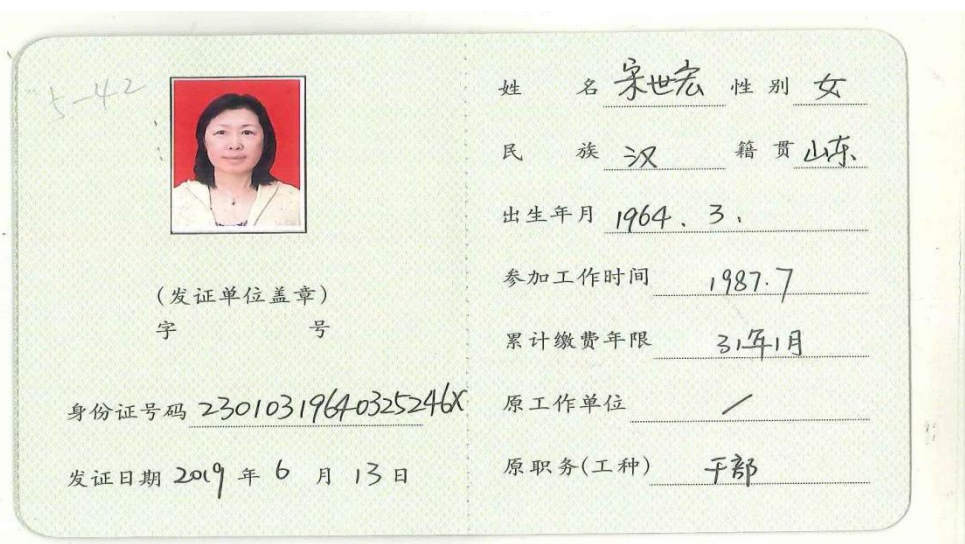 5-42
(发证单位盖章)
字 号
身份证号码 23010319640325246X
发证日期 2019 年 6 月 13 日
姓 名 宋世宏 性 别 女
民 族 汉 籍 贯 山东
出生年月 1964.3.
参加工作时间 1987.7
累计缴费年限 31年1月
原工作单位 /
原职务(工种) 干部